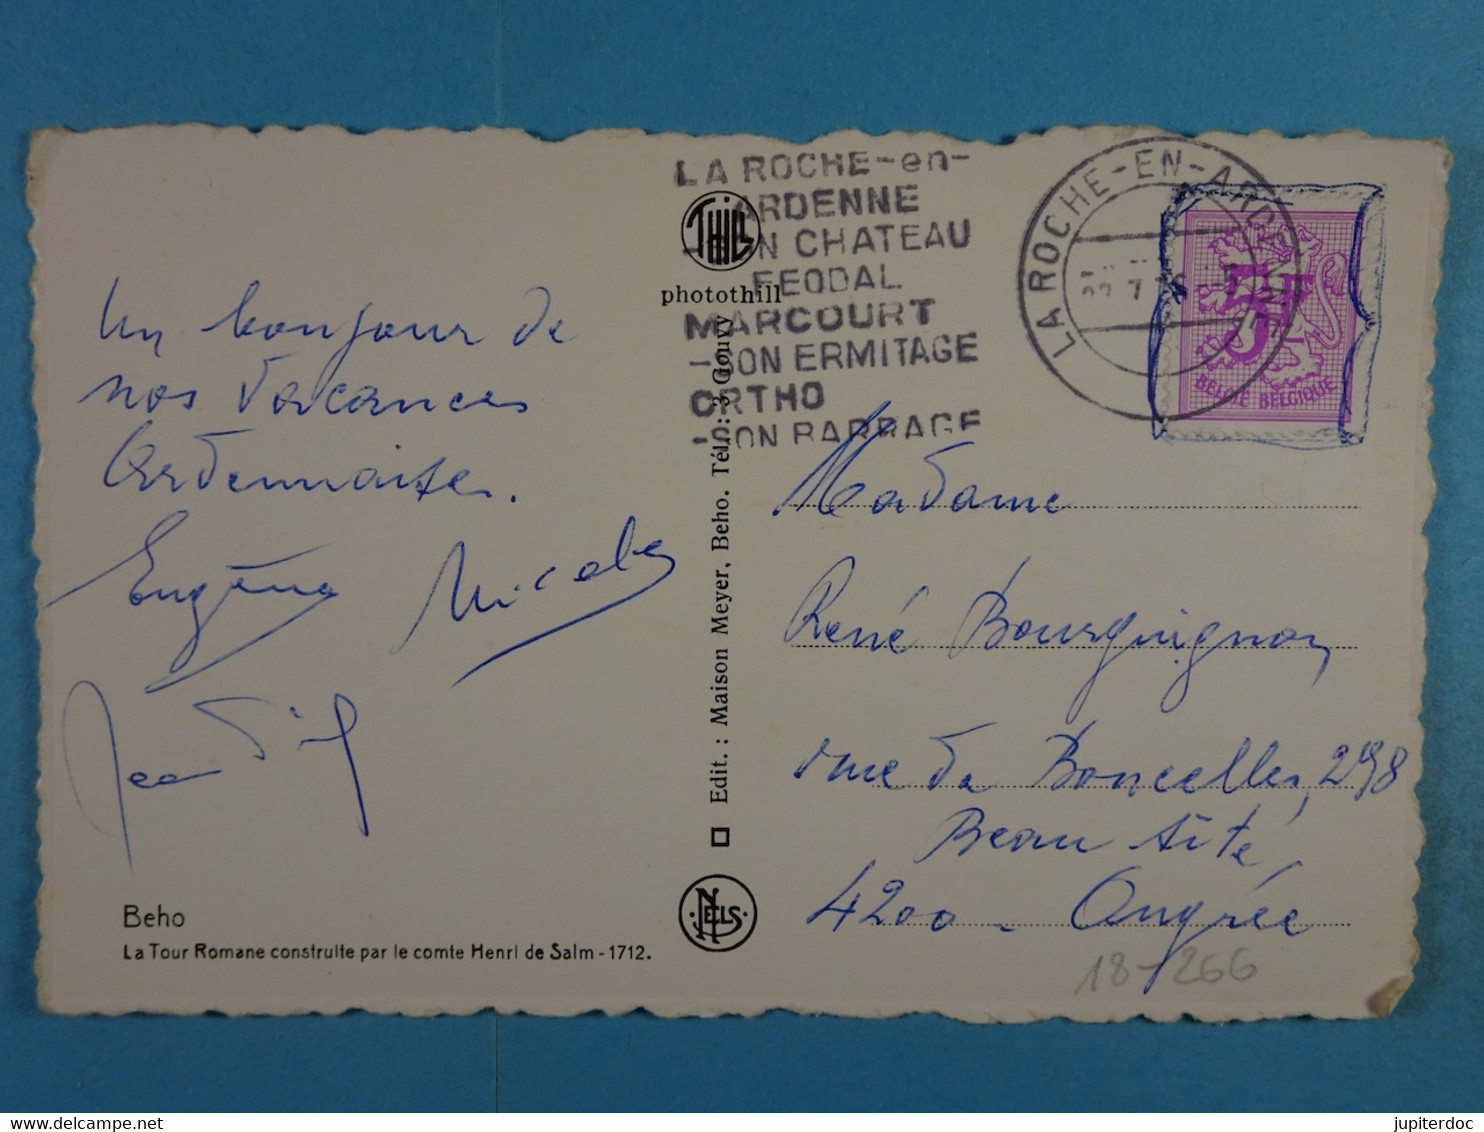 LA ROCHE-en-
ARDENNE
-SON CHATEAU
FEODAL
MARCOURT
-SON ERMITAGE
ORTHO
-SON BARRAGE
LA ROCHE-EN-ARDENNE
5F
BELGIË BELGIQUE
THILL
photothill
Un bonjour de
nos Vacances
Ardennaises.
Eugène Nicole
Jean
Edit. : Maison Meyer, Beho. Tél. : 3 Gouvy
Madame
René Bourguignon
rue de Boncelles, 298
Beau Site,
4200 - Ougrée
18-266
NELS
Beho
La Tour Romane construite par le comte Henri de Salm - 1712.
www.delcampe.net
jupiterdoc